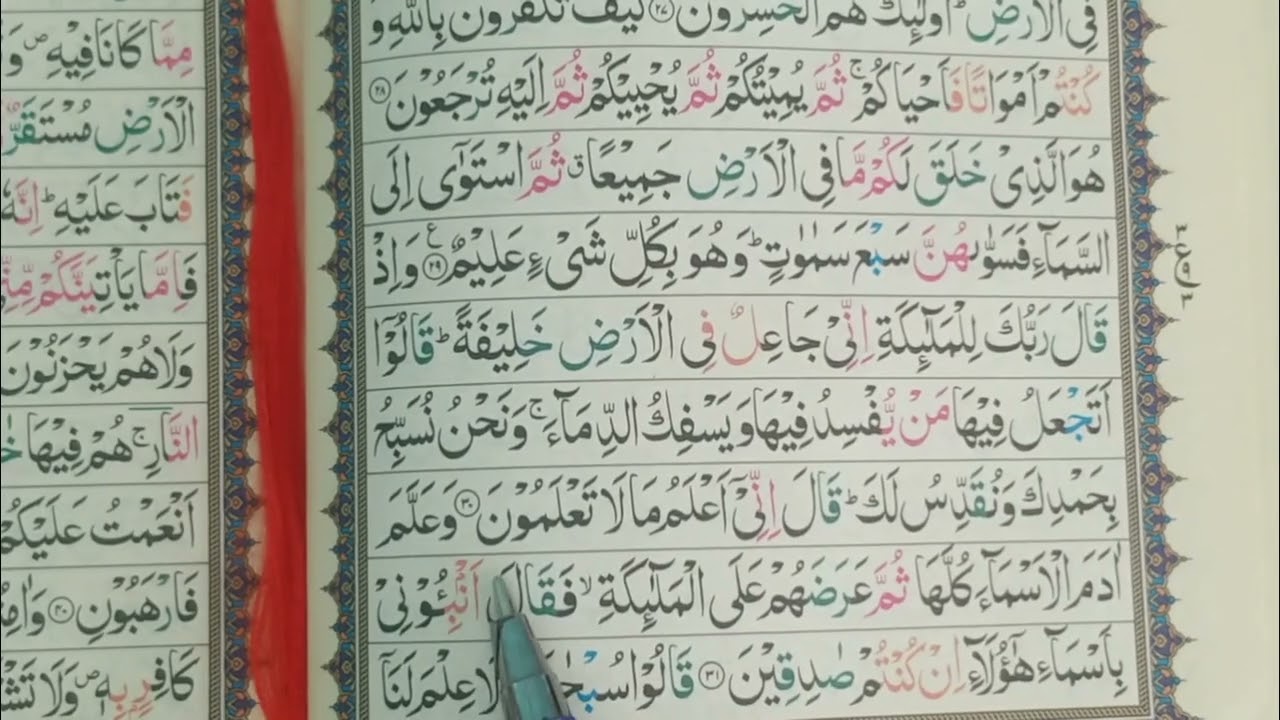 فِى الْاَرْضِ ؕ اُولٰٓئِكَ هُمُ الْخٰسِرُوْنَ ۟۲۷ كَيْفَ تَكْفُرُوْنَ بِاللّٰهِ وَ
كُنْتُمْ اَمْوَاتًا فَاَحْيَاكُمْ ۚ ثُمَّ يُمِيْتُكُمْ ثُمَّ يُحْيِيْكُمْ ثُمَّ اِلَيْهِ تُرْجَعُوْنَ ۟۲۸
هُوَ الَّذِىْ خَلَقَ لَكُمْ مَّا فِى الْاَرْضِ جَمِيْعًا ۗ ثُمَّ اسْتَوٰٓى اِلَى
السَّمَآءِ فَسَوّٰىهُنَّ سَبْعَ سَمٰوٰتٍ ؕ وَهُوَ بِكُلِّ شَىْءٍ عَلِيْمٌ ۟۲۹ وَاِذْ
قَالَ رَبُّكَ لِلْمَلٰٓئِكَةِ اِنِّىْ جَاعِلٌ فِى الْاَرْضِ خَلِيْفَةً ؕ قَالُوْٓا
اَتَجْعَلُ فِيْهَا مَنْ يُّفْسِدُ فِيْهَا وَيَسْفِكُ الدِّمَآءَ ۚ وَنَحْنُ نُسَبِّحُ
بِحَمْدِكَ وَنُقَدِّسُ لَكَ ؕ قَالَ اِنِّىْٓ اَعْلَمُ مَا لَا تَعْلَمُوْنَ ۟۳۰ وَعَلَّمَ
اٰدَمَ الْاَسْمَآءَ كُلَّهَا ثُمَّ عَرَضَهُمْ عَلَى الْمَلٰٓئِكَةِ ۙ فَقَالَ اَنْۢبِـُٔوْنِىْ
بِاَسْمَآءِ هٰٓؤُلَآءِ اِنْ كُنْتُمْ صٰدِقِيْنَ ۟۳۱ قَالُوْا لَا عِلْمَ لَنَآ
مِمَّا كَانَا فِيْهِ ۪
الْاَرْضِ مُسْتَقَرٌّ
فَتَابَ عَلَيْهِ ؕ اِنَّهٗ
فَاِمَّا يَاْتِيَنَّكُمْ مِّنِّىْ
وَلَا هُمْ يَحْزَنُوْنَ
النَّارِ ۚ هُمْ فِيْهَا
اَنْعَمْتُ عَلَيْكُمْ
فَارْهَبُوْنِ ۟۴۰
كَافِرٍۭ بِهٖ ۪ وَلَا